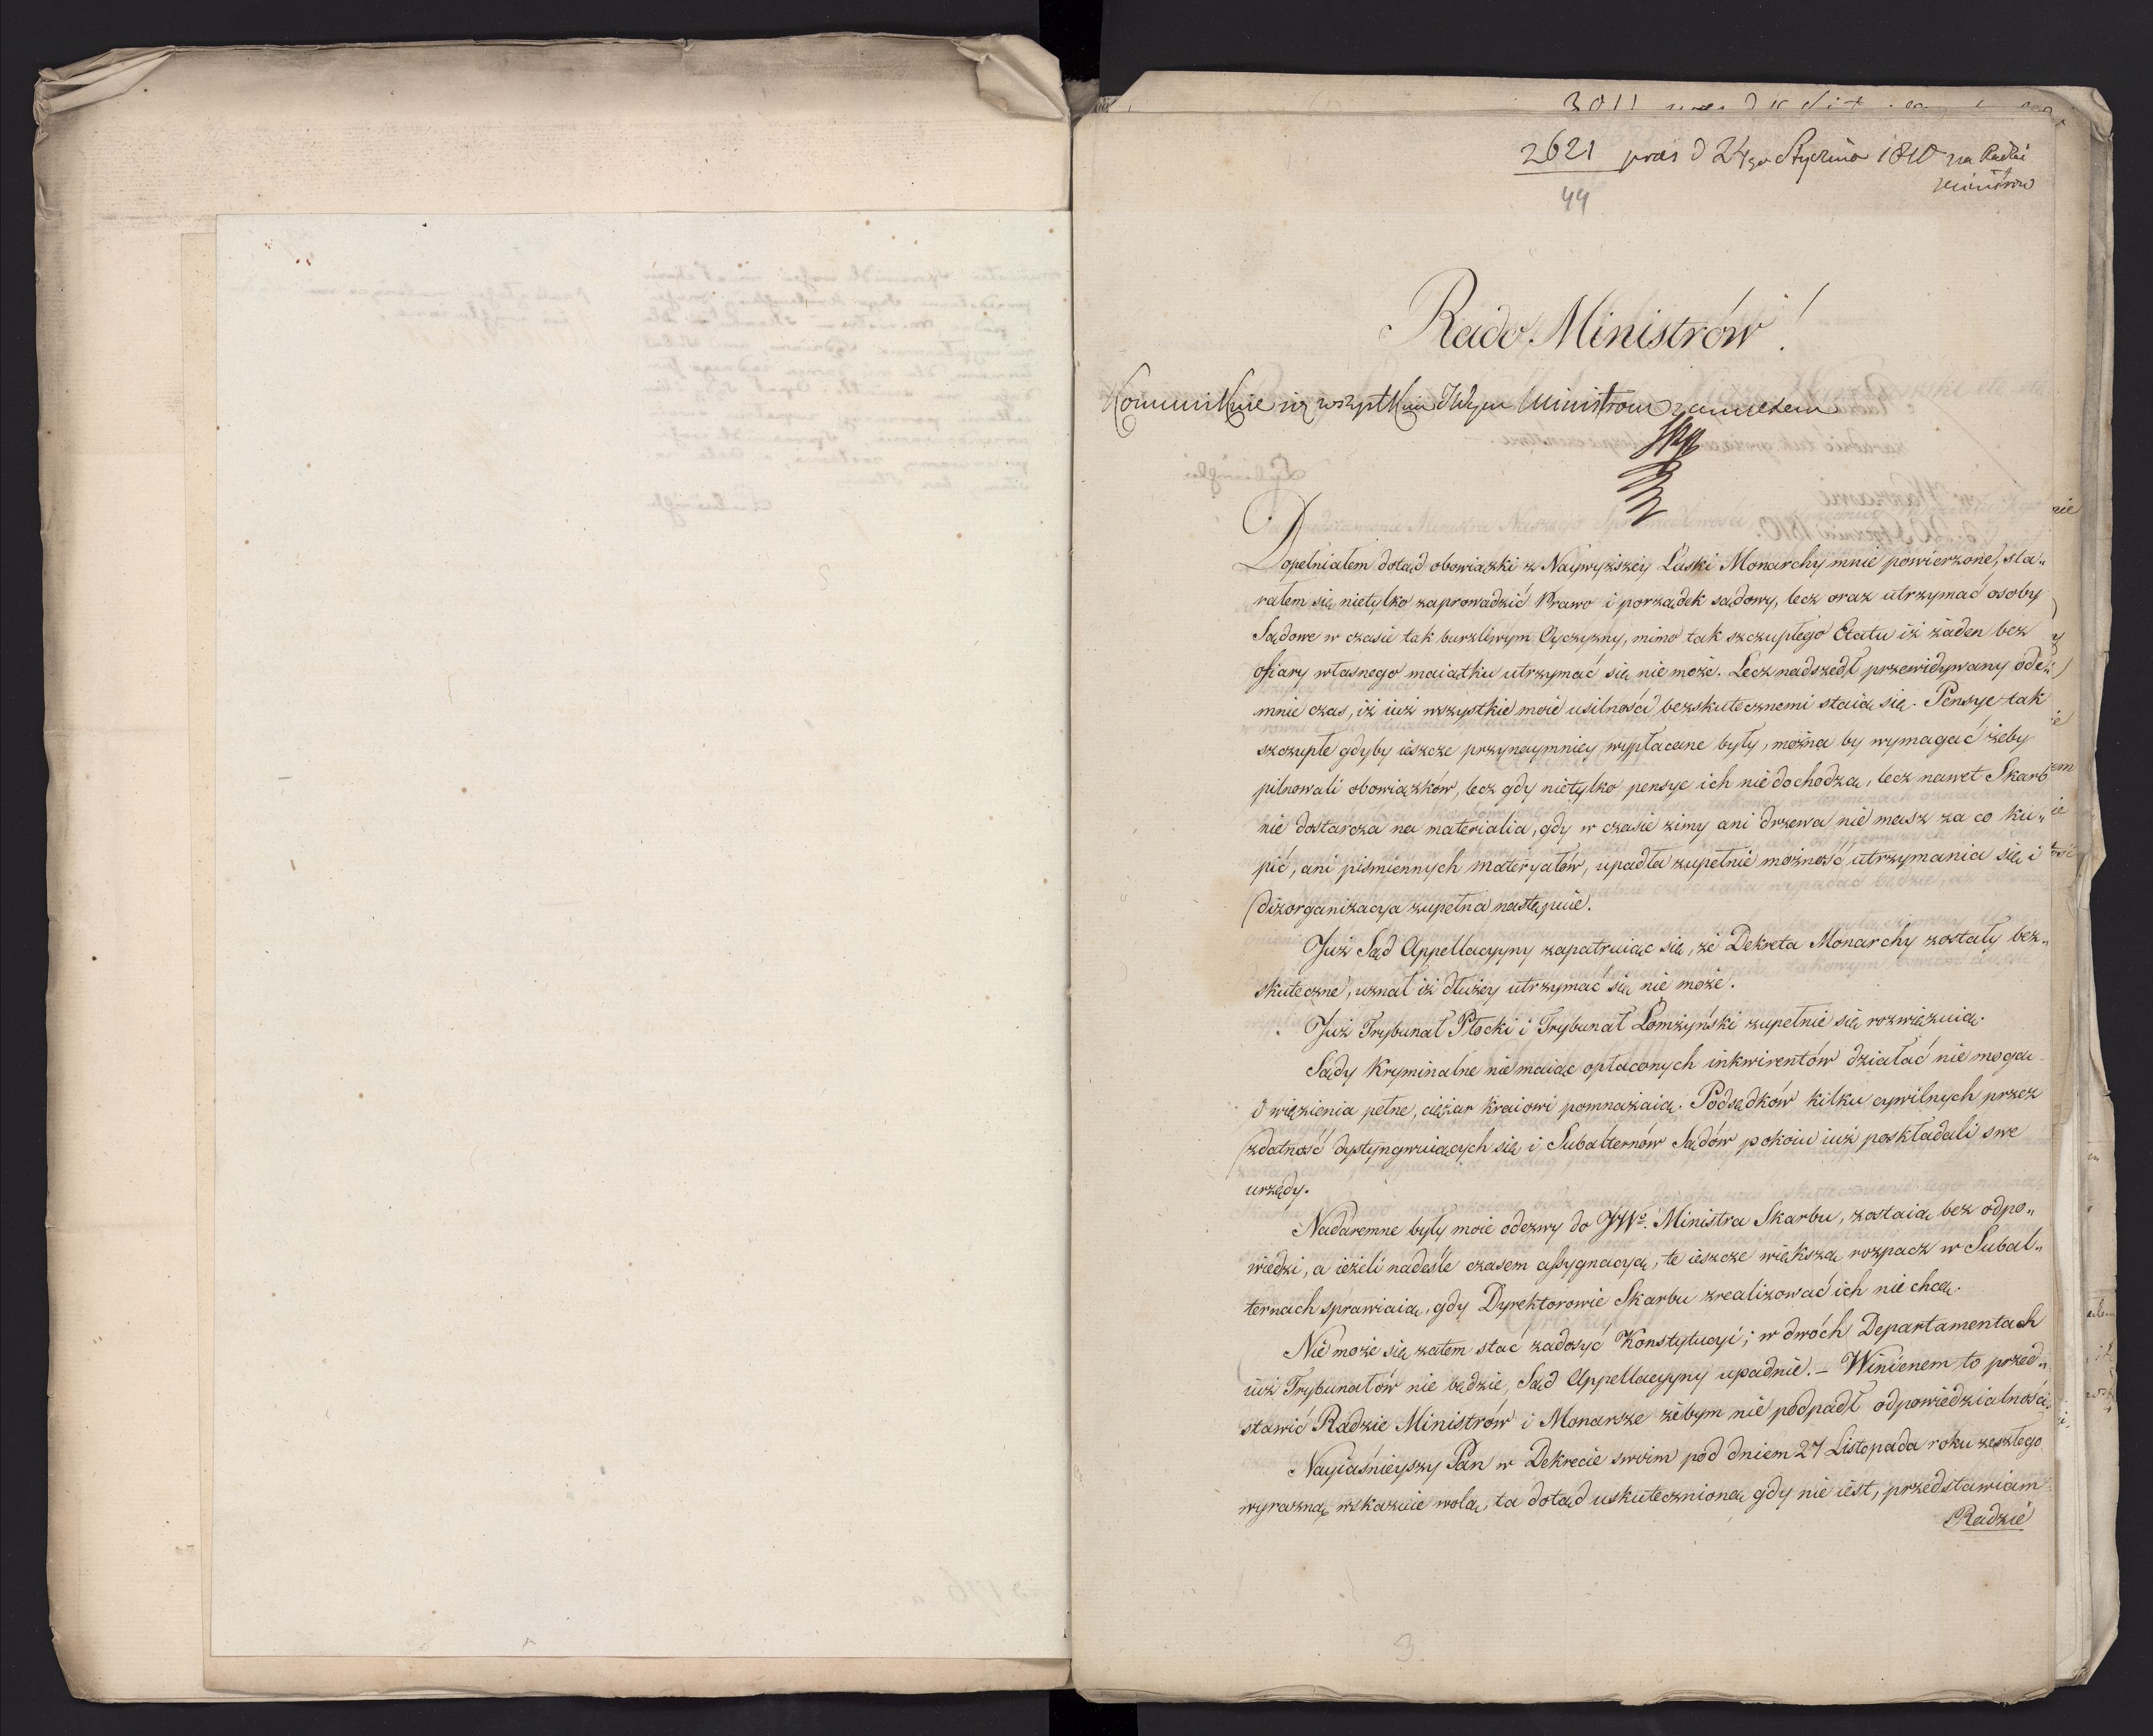 2621 pras d 24go Stycznia 1810 na Radzie
Ministrów
44
Rado Ministrów!
Kommunikuie się wszystkim JWym Ministrom
Dopełniałem dotąd obowiązki z Naywyższey Łaski Monarchy mnie powierzone, sta„
rałem się nietylko zaprowadzić Prawo i porządek sądowy, lecz oraz utrzymać osoby
Sądowe w czasie tak burzliwym Oyczyzny, mimo tak szczupłego Etatu iż żaden bez
ofiary własnego maiątku utrzymać się nie może. Lecz nadszedł przewidywany ode„
mnie czas, iż iuż wszystkie moie usilności bezskutecznemi staią się. Pensye tak
szczupłe gdyby ieszcze przynaymniey wypłacane były, można by wymagać żeby
pilnowali obowiązków, lecz gdy nietylko pensye ich nie dochodzą, lecz nawet Skarb
nie dostarcza na materialia, gdy w czasie zimy ani drzewa nie masz za co ku„
pić, ani piśmiennych materyałów, upadła zupełnie możność utrzymania się i
dizorganizacya zupełna następuie.
Już Sąd Appellacyyny zapatruiąc się, że Dekreta Monarchy zostały bez„
skuteczne, uznał iż dłużey utrzymać się nie może.
Już Trybunał Płocki i Trybunał Łomżyński zupełnie się rozwięzuią.
Sądy Kryminalne nie maiąc opłaconych inkwirentów działać nie mogą
i więzienia pełne, ciężar kraiowi pomnażaią. Podsędków kilku cywilnych przez
zdatność dystyngwuiących się i Subalternów Sądów pokoiu iuż poskładali swe
urzędy.
Nadaremne były moie odezwy do JWo. Ministra Skarbu, zostaią bez odpo„
wiedzi, a ieżeli nadeśle czasem assygnacyą, te ieszcze większą rozpacz w Subal„
ternach sprawiaią, gdy Dyrektorowie Skarbu zrealizować ich nie chcą.
Nie może się zatem stać zadosyć Konstytucyi; w dwóch Departamentach
iuż Trybunałów nie będzie, Sąd Appellacyyny upadnie. – Winienem to przed„
stawić Radzie Ministrów i Monarsze żebym nie podpadł odpowiedzialności.
Nayiaśnieyszy Pan w Dekrecie swoim pod dniem 27 Listopada roku zeszłego
wyraźną wskazuie wolą, ta dotąd uskutecznioną gdy nie iest, przedstawiam
Radzie
3